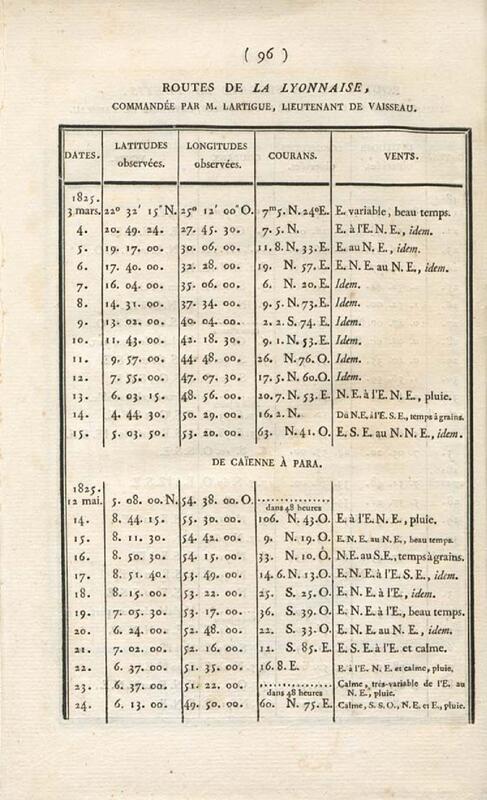 ( 96 )
ROUTES DE LA LYONNAISE,
COMMANDÉE PAR M. LARTIGUE, LIEUTENANT DE VAISSEAU.
DATES. LATITUDES observées. LONGITUDES observées. COURANS. VENTS.
1825.
3 mars. 22° 32' 15" N. 25° 12' 00" O. 7m 5. N. 24° E. E. variable, beau temps.
4. 20. 49. 24. 27. 45. 30. 7. 5. N. E. à l'E. N. E., idem.
5. 19. 17. 00. 30. 06. 00. 11. 8. N. 33. E. E. au N. E., idem.
6. 17. 40. 00. 32. 28. 00. 19. N. 57. E. E. N. E. au N. E., idem.
7. 16. 04. 00. 35. 06. 00. 6. N. 20. E. Idem.
8. 14. 31. 00. 37. 34. 00. 9. 5. N. 73. E. Idem.
9. 13. 02. 00. 40. 04. 00. 2. 2. S. 74. E. Idem.
10. 11. 43. 00. 42. 18. 30. 9. 1. N. 53. E. Idem.
11. 9. 57. 00. 44. 48. 00. 26. N. 76. O. Idem.
12. 7. 55. 00. 47. 07. 30. 17. 5. N. 60. O. Idem.
13. 6. 03. 15. 48. 56. 00. 20. 7. N. 53. E. N. E. à l'E. N. E., pluie.
14. 4. 44. 30. 50. 29. 00. 16. 2. N. Du N. E. à l'E. S. E., temps à grains.
15. 5. 03. 50. 53. 20. 00. 63. N. 41. O. E. S. E. au N. N. E., idem.
DE CAÏENNE À PARA.
1825.
12 mai. 5. 08. 00. N. 54. 38. 00. O. ..............
dans 48 heures
14. 8. 44. 15. 55. 30. 00. 106. N. 43. O. E. à l'E. N. E., pluie.
15. 8. 11. 30. 54. 42. 00. 9. N. 19. O. E. N. E. au N. E., beau temps.
16. 8. 50. 30. 54. 15. 00. 33. N. 10. O. N. E. au S. E., temps à grains.
17. 8. 51. 40. 53. 49. 00. 14. 6. N. 13. O. E. N. E. à l'E. S. E., idem.
18. 8. 15. 00. 53. 22. 00. 25. S. 25. O. E. N. E. à l'E., idem.
19. 7. 05. 30. 53. 17. 00. 36. S. 39. O. E. N. E. à l'E., beau temps.
20. 6. 24. 00. 52. 48. 00. 22. S. 33. O. E. N. E. au N. E., idem.
21. 7. 02. 00. 52. 16. 00. 12. S. 85. E. E. S. E. à l'E. et calme.
22. 6. 37. 00. 51. 35. 00. 16. 8. E. E. à l'E. N. E. et calme, pluie.
23. 6. 37. 00. 51. 22. 00. .............. Calme, très-variable de l'E. au
dans 48 heures N. E., pluie.
24. 6. 13. 00. 49. 50. 00. 60. N. 75. E. Calme, S. S. O., N. E. et E., pluie.